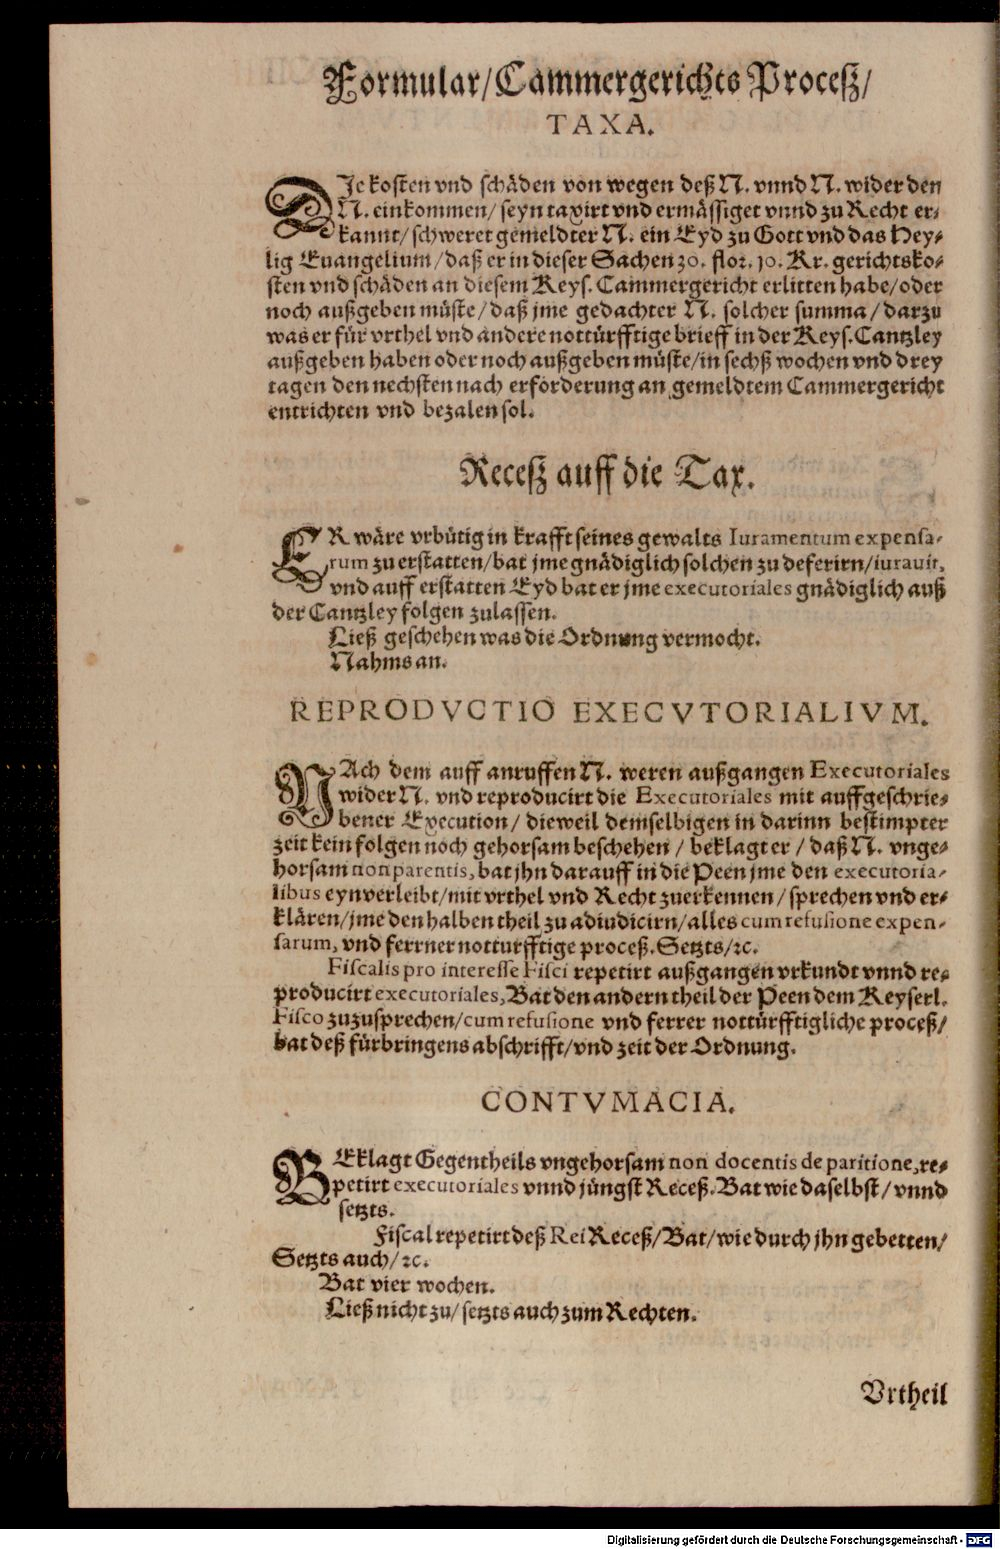 Formular/Cammergerichts Proceß/
TAXA.
DIe kosten vnd schäden von wegen deß N. vnnd N. wider den
N. einkommen/ seyn taxirt vnd ermässiget vnnd zu Recht er-
kannt/ schweret gemeldter N. ein Eyd zu Gott vnd das Hey-
lig Euangelium/daß er in dieser Sachen 30. flor. 10. Kr. gerichtsko-
sten vnd schäden an diesem Keys. Cammergericht erlitten habe/oder
noch außgeben müste/daß jme gedachter N. solcher summa/darzu
was er für vrthel vnd andere nottürfftige brieff in der Keys. Cantzley
außgeben haben oder noch außgeben müste/in sechß wochen vnd drey
tagen den nechsten nach erforderung an gemeldtem Cammergericht
entrichten vnd bezalen sol.
Receß auff die Tax.
ER wäre vrbütig in krafft seines gewalts Iuramentum expensa-
rum zu erstatten/bat jme gnädiglich solchen zu deferirn/iurauit,
vnd auff erstatten Eyd bat er jme executoriales gnädiglich auß
der Cantzley folgen zulassen.
Ließ geschehen was die Ordnung vermocht.
Nahms an.
REPRODVCTIO EXECVTORIALIVM.
NAch dem auff anruffen N. weren außgangen Executoriales
wider N. vnd reproducirt die Executoriales mit auffgeschrie-
bener Execution/ dieweil demselbigen in darinn bestimpter
zeit kein folgen noch gehorsam beschehen/ beklagt er/ daß N. vnge-
horsam non parentis, bat jhn darauff in die Peen jme den executoria-
libus eynverleibt/mit vrthel vnd Recht zuerkennen/sprechen vnd er-
klären/jme den halben theil zu adiudicirn/alles cum refusione expen-
sarum, vnd ferrner notturfftige proceß. Setzts/ꝛc.
Fiscalis pro interesse Fisci repetirt außgangen vrkundt vnnd re-
producirt executoriales, Bat den andern theil der Peen dem Keyserl.
Fisco zuzusprechen/cum refusione vnd ferrer nottürfftigliche proceß/
bat deß fürbringens abschrifft/vnd zeit der Ordnung.
CONTVMACIA.
BEklagt Gegentheils vngehorsam non docentis de paritione, re-
petirt executoriales vnnd jüngst Receß. Bat wie daselbst/vnnd
setzts.
Fiscal repetirt deß Rei Receß/Bat/wie durch jhn gebetten/
Setzts auch/ꝛc.
Bat vier wochen.
Ließ nicht zu/setzts auch zum Rechten.
Vrtheil
Digitalisierung gefördert durch die Deutsche Forschungsgemeinschaft - DFG